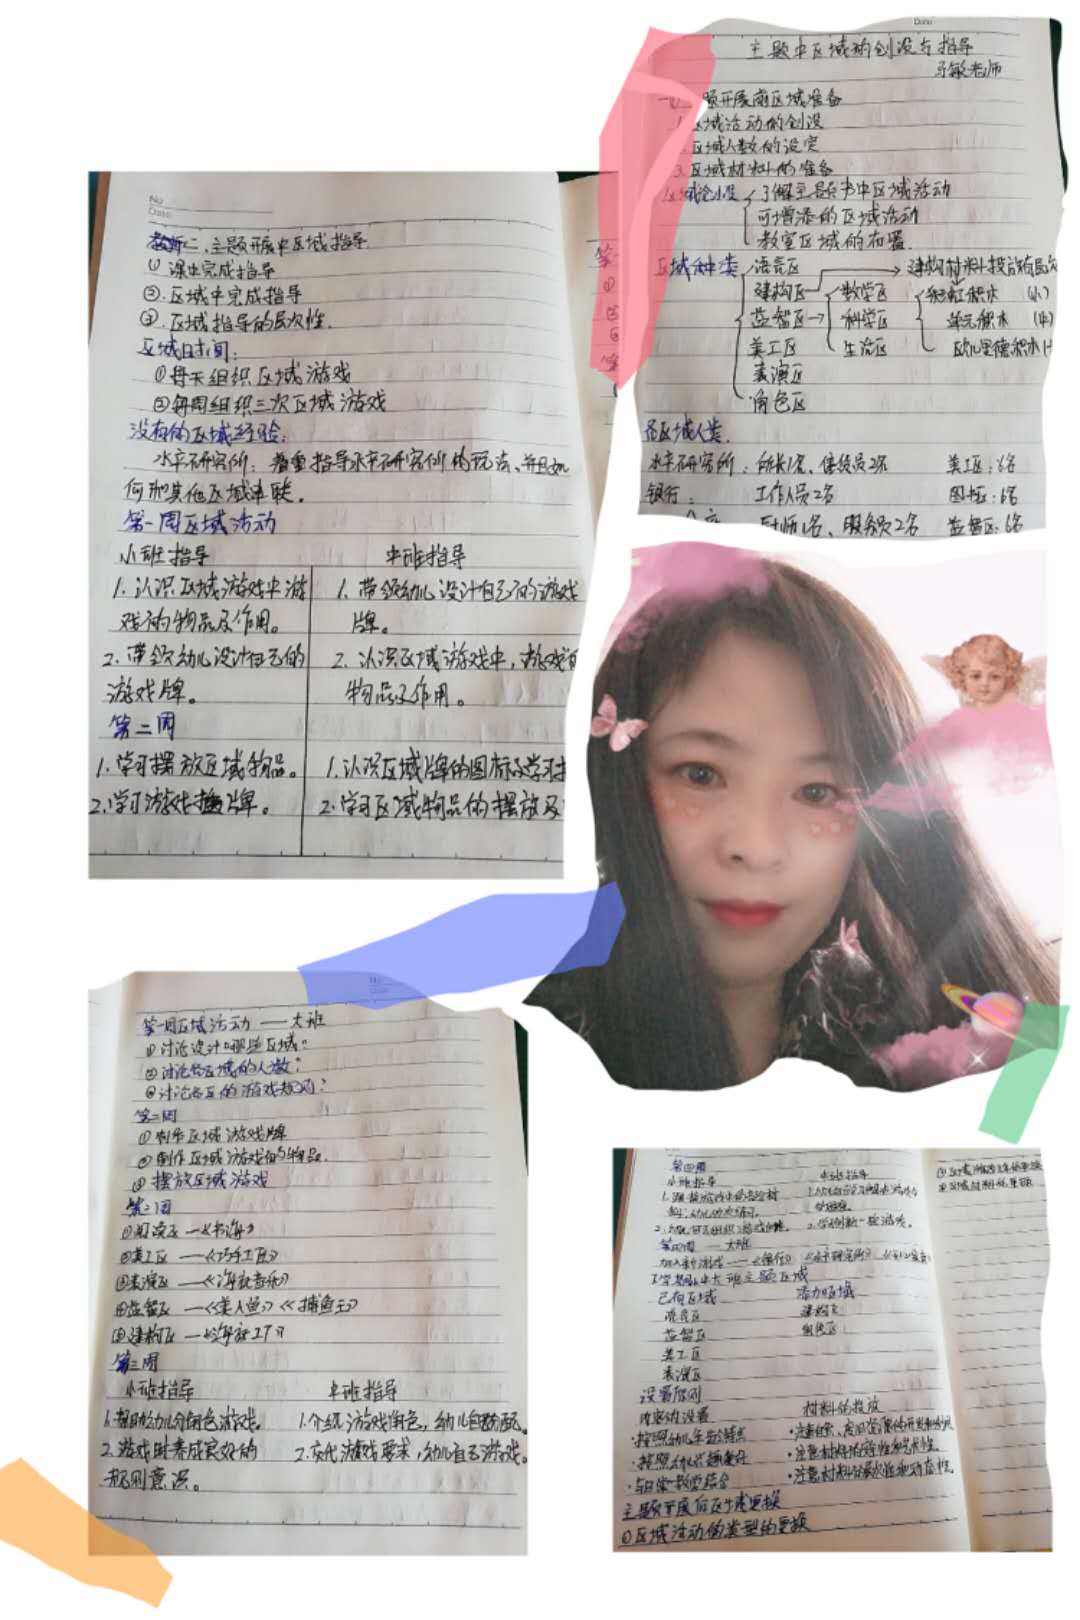 Date
主题中区域的创设与指导
马敏老师
题开展前区域准备
1.区域活动的创设
区域人数的设定
3.区域材料的准备
区域创设 了解主题书中区域活动
可增添的区域活动
教室区域的布置
区域种类 语言区 建构材料投放有层次
建构区 数学区 彩虹积木 (小)
益智区→ 科学区 单元积木 (中)
美工区 生活区 欧几里德积木(
表演区
角色区
各区域人类.
水产研究所:所长1名、保赞员2名 美工区:6名
银行: 工作人员2名 图书区:6名
厨师1名、服务员2名 益智区:6名
No
Date
二、主题开展中区域指导
①课中完成指导
②.区域中完成指导
③.区域指导的层次性.
区域时间:
①每天组织区域游戏
②每周组织三次区域游戏
没有的区域经验:
水产研究所:着重指导水产研究所的玩法、并且如
何和其他区域串联。
第一周区域活动
小班指导 中班指导
1.认识区域游戏中游
戏的物品及作用。
2.带领幼儿设计自己的
游戏牌。
1.带领幼儿设计自己的游戏
牌。
2.认识区域游戏中,游戏的
物品及作用。
第二周
1.学习摆放区域物品。
2.学习游戏插牌。
1.认识区域牌的图标及学习
2.学习区域物品的摆放及
第一周区域活动——大班
①讨论设计哪些区域?
②讨论各区域的人数?
③讨论各区的游戏规则?
第二周
①制作区域游戏牌
②制作区域游戏的物品.
③摆放区域游戏
第三周
①阅读区—《书海》
②美工区—《巧手工匠》
③表演区—《海底音乐》
④益智区—《美人鱼》《捕鱼王》
⑤建构区—《海底工厂》
第三周
小班指导 中班指导
1.帮助幼儿分角色游戏。
2.游戏时养成良好的
规则意识。
1.介绍游戏角色,幼儿自主分配。
2.交代游戏要求,幼儿自主游戏。
第四周
小班指导 中班指导
第四周 — 大班
大班主题区域
已有区域 添加区域
语言区 建构区
益智区 角色区
美工区
表演区
设置原则
内容的设置 材料的投放
·按照幼儿年龄特点
·按照幼儿兴趣集中
·与日常教学结合
·注意材料的层次性和动态性.
主题开展后区域更换
①区域活动的类型的更换